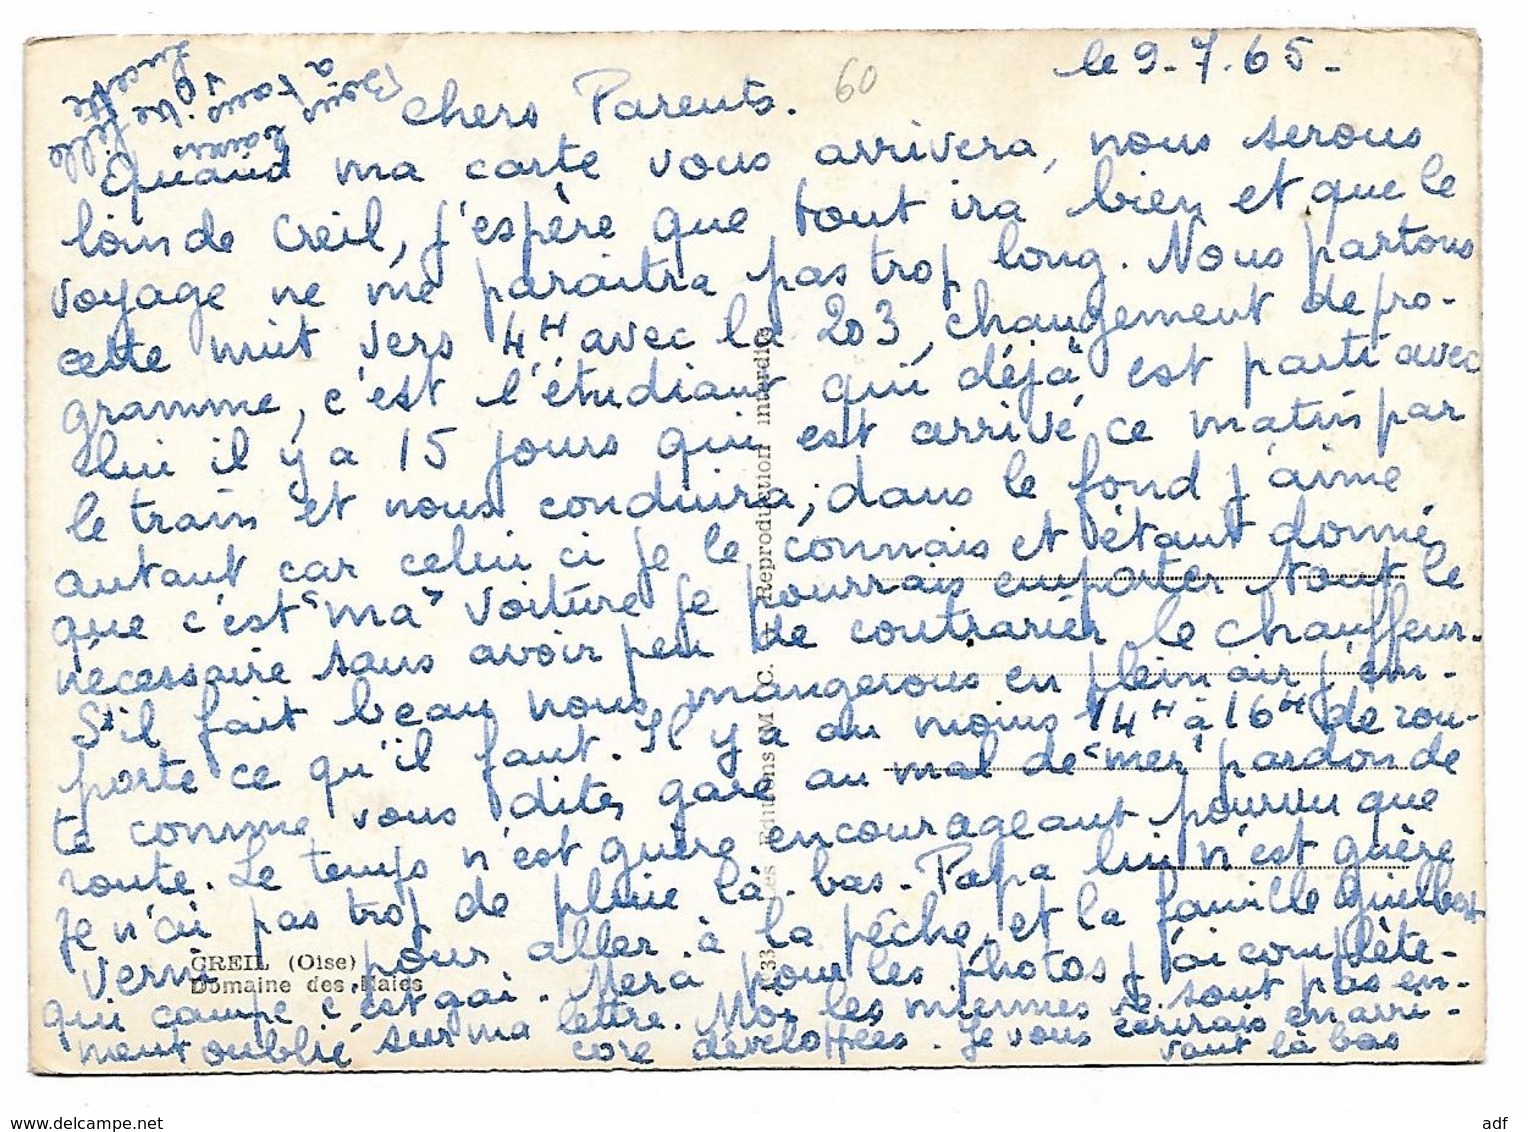 le 9-7.65-
60
Chers Parents.
Quand ma carte vous arrivera, nous serons
loin de Creil, j'espère que tout ira bien et que le
voyage ne me paraitra pas trop long. Nous partons
cette nuit vers 4H avec la 203, changement de pro-
gramme, c'est l'étudiant qui déjà est parti avec
lui il y a 15 jours qui est arrivé ce matin par
le train et nous conduira; dans le fond j'aime
autant car celui ci je le connais et étant donné
que c'est "ma" voiture je pourrais emporter tout le
nécessaire sans avoir peu de contrarier le chauffeur.
S'il fait beau nous mangerons en plein air j'em-
porte ce qu'il faut. Il y a au moins 14H à 16H de rou-
te comme vous dites gare au mal de "mer" pardon de
route. Le temps n'est guère encourageant pourvu que
je n'ai pas trop de pluie là-bas. Papa lui n'est guère
verni pour aller à la pêche, et la famille
qui campe c'est gai. Merci pour les photos j'ai complète-
ment oublié sur ma lettre. Moi les miennes ne sont pas en-
core développées. Je vous écrirais en arri-
vant là bas
Bons
à tous
Lucette
CREIL (Oise)
Domaine des Haies
33
Les Editions M. C. Reproduction interdite
www.delcampe.net
adf